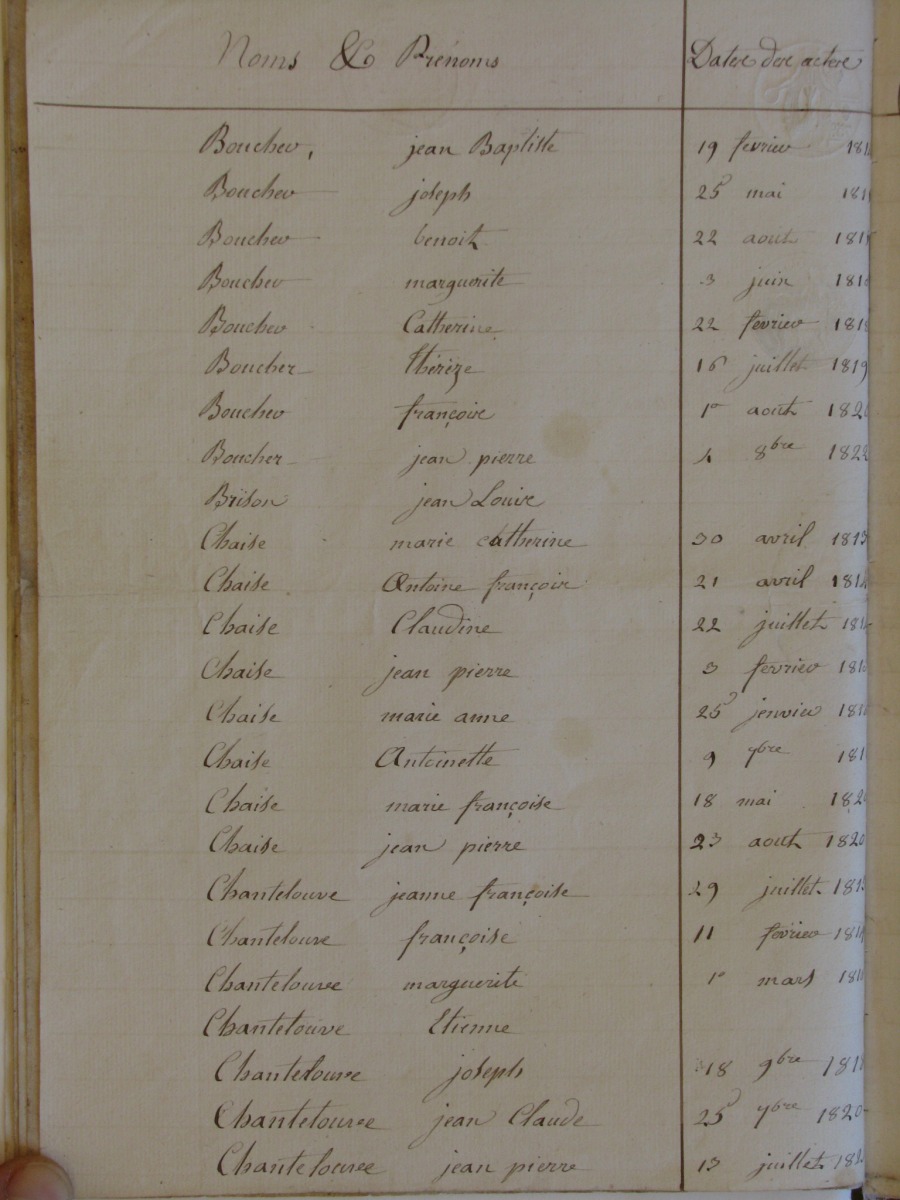 Noms & Prénoms Dates des actes
Boucher, jean Baptiste 19 fevrier
Boucher joseph 25 mai
Boucher benoit 22 aout
Boucher marguerite 3 juin
Boucher Catherine 22 fevrier 1818
Boucher thérèze 16 juillet 1819
Boucher françois 1e aout
Boucher jean pierre 4 8bre 1822
Brison jean Louis
Chaise marie catherine 30 avril 1813
Chaise Antoine françois 21 avril
Chaise Claudine 22 juillet
Chaise jean pierre 3 fevrier
Chaise marie anne 25 jenvier
Chaise Antoinette 9 7bre
Chaise marie françoise 18 mai
Chaise jean pierre 23 aout 1820
Chantelouve jeanne françoise 29 juillet
Chantelouve françoise 11 fevrier
Chantelouve marguerite 1e mars
Chantelouve Etienne
Chantelouve joseph 18 9bre
Chantelouve jean Claude 25 7bre 1820
Chantelouve jean pierre 13 juillet